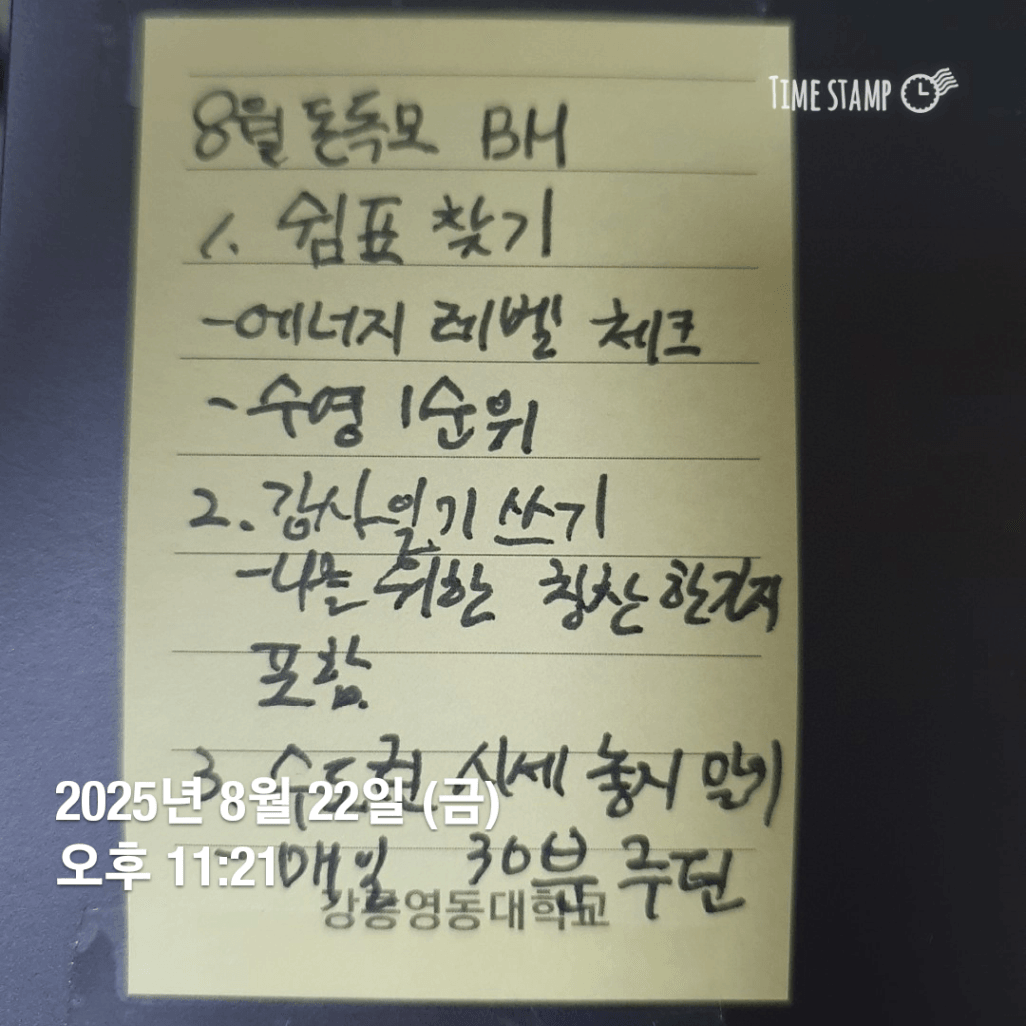 TIME STAMP
8월 돈독모 BH
1. 쉼표 찾기
-에너지 레벨 체크
- 수영 1순위
2. 감사일기 쓰기
-나를 위한 칭찬 한가지
포함
3. 수도권 시세 놓지 말기
- 매일 30분 루틴
강릉영동대학교
2025년 8월 22일 (금)
오후 11:21